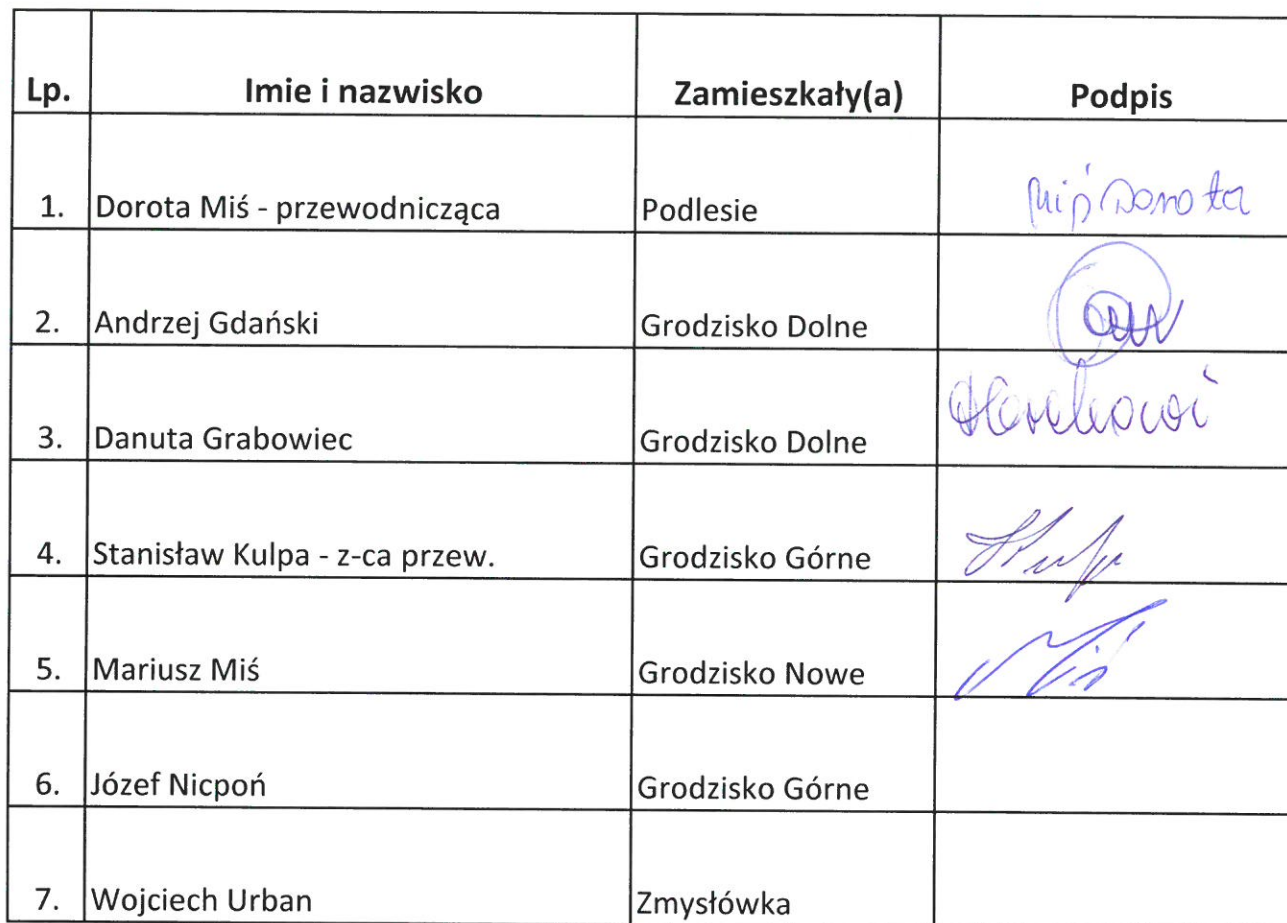 Lp. Imie i nazwisko Zamieszkały(a) Podpis
1. Dorota Miś - przewodnicząca Podlesie Miś Dorota
2. Andrzej Gdański Grodzisko Dolne
3. Danuta Grabowiec Grodzisko Dolne
4. Stanisław Kulpa - z-ca przew. Grodzisko Górne
5. Mariusz Miś Grodzisko Nowe Miś
6. Józef Nicpoń Grodzisko Górne
7. Wojciech Urban Zmysłówka